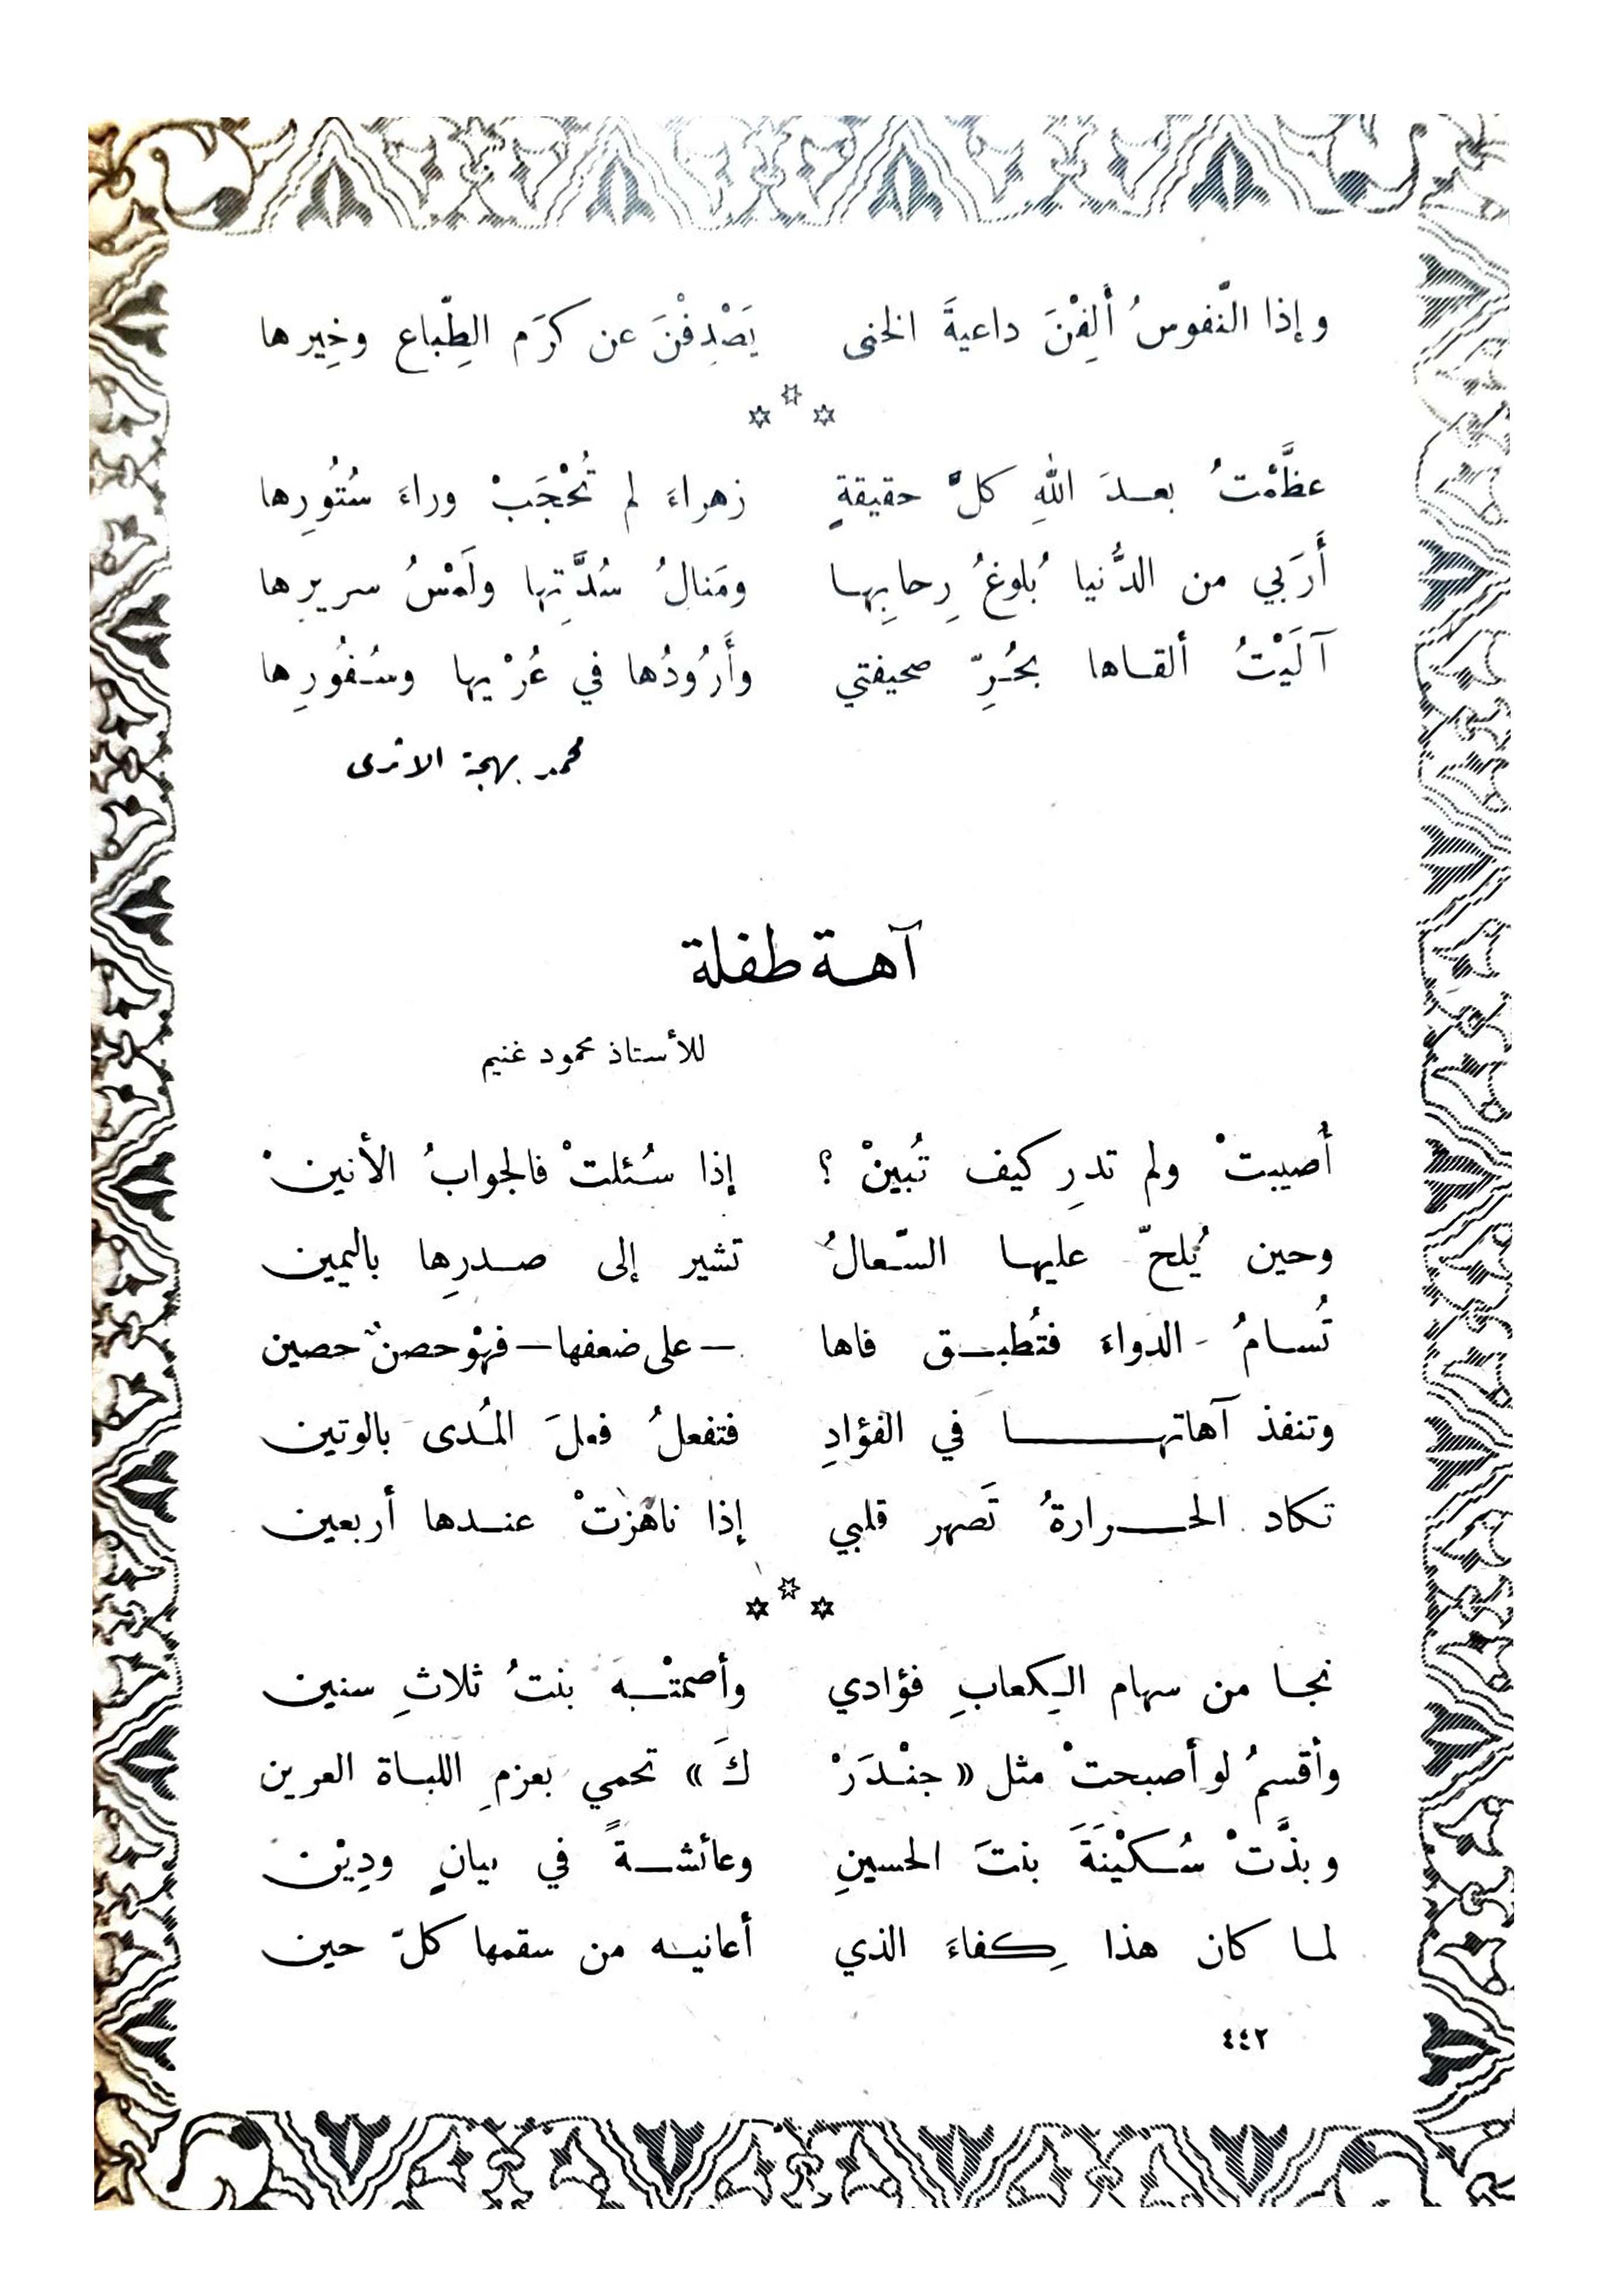 وإذا النّفوسُ أَلِفْنَ داعيةَ الخنى يَصْدِفْنَ عن كرَم الطِّباع وخِيرها
عظَّمْتُ بعدَ اللهِ كلَّ حقيقةٍ زهراءَ لم تُحْجَبْ وراءَ سُتُورِها
أَرَبي من الدُّنيا بُلوغُ رِحابِها ومَنالُ سُدَّتِها ولَمْسُ سريرِها
آلَيْتُ ألقاها بحُرِّ صحيفتي وأَرُودُها في عُرْيها وسُفُورِها
محمد بهجة الاثرى
آهة طفلة
للأستاذ محمود غنيم
أُصيبتْ ولم تدرِ كيف تُبينْ ؟ إذا سُئلتْ فالجوابُ الأنينْ
وحين يُلحّ عليها السّعالُ تشير إلى صدرِها باليمين
تُسامُ الدواءَ فتُطبق فاها – على ضعفها – فهْو حصنٌ حصين
وتنفذ آهاتها في الفؤادِ فتفعلُ فعلَ المُدى بالوتين
تكاد الحرارةُ تَصهر قلبي إذا ناهَزتْ عندها أربعين
نجا من سهام الكِعابِ فؤادي وأصمتْهَ بنتُ ثلاثِ سنين
وأقسمُ لو أصبحتْ مثل « جنْدَرْ كَ » تحمي بعزمِ اللباة العرين
وبذَّتْ سُكَيْنَةَ بنتَ الحسينِ وعائشةً في بيانٍ ودِيْن
لما كان هذا كِفاءَ الذي أعانيه من سقمها كلّ حين
٤٤٢